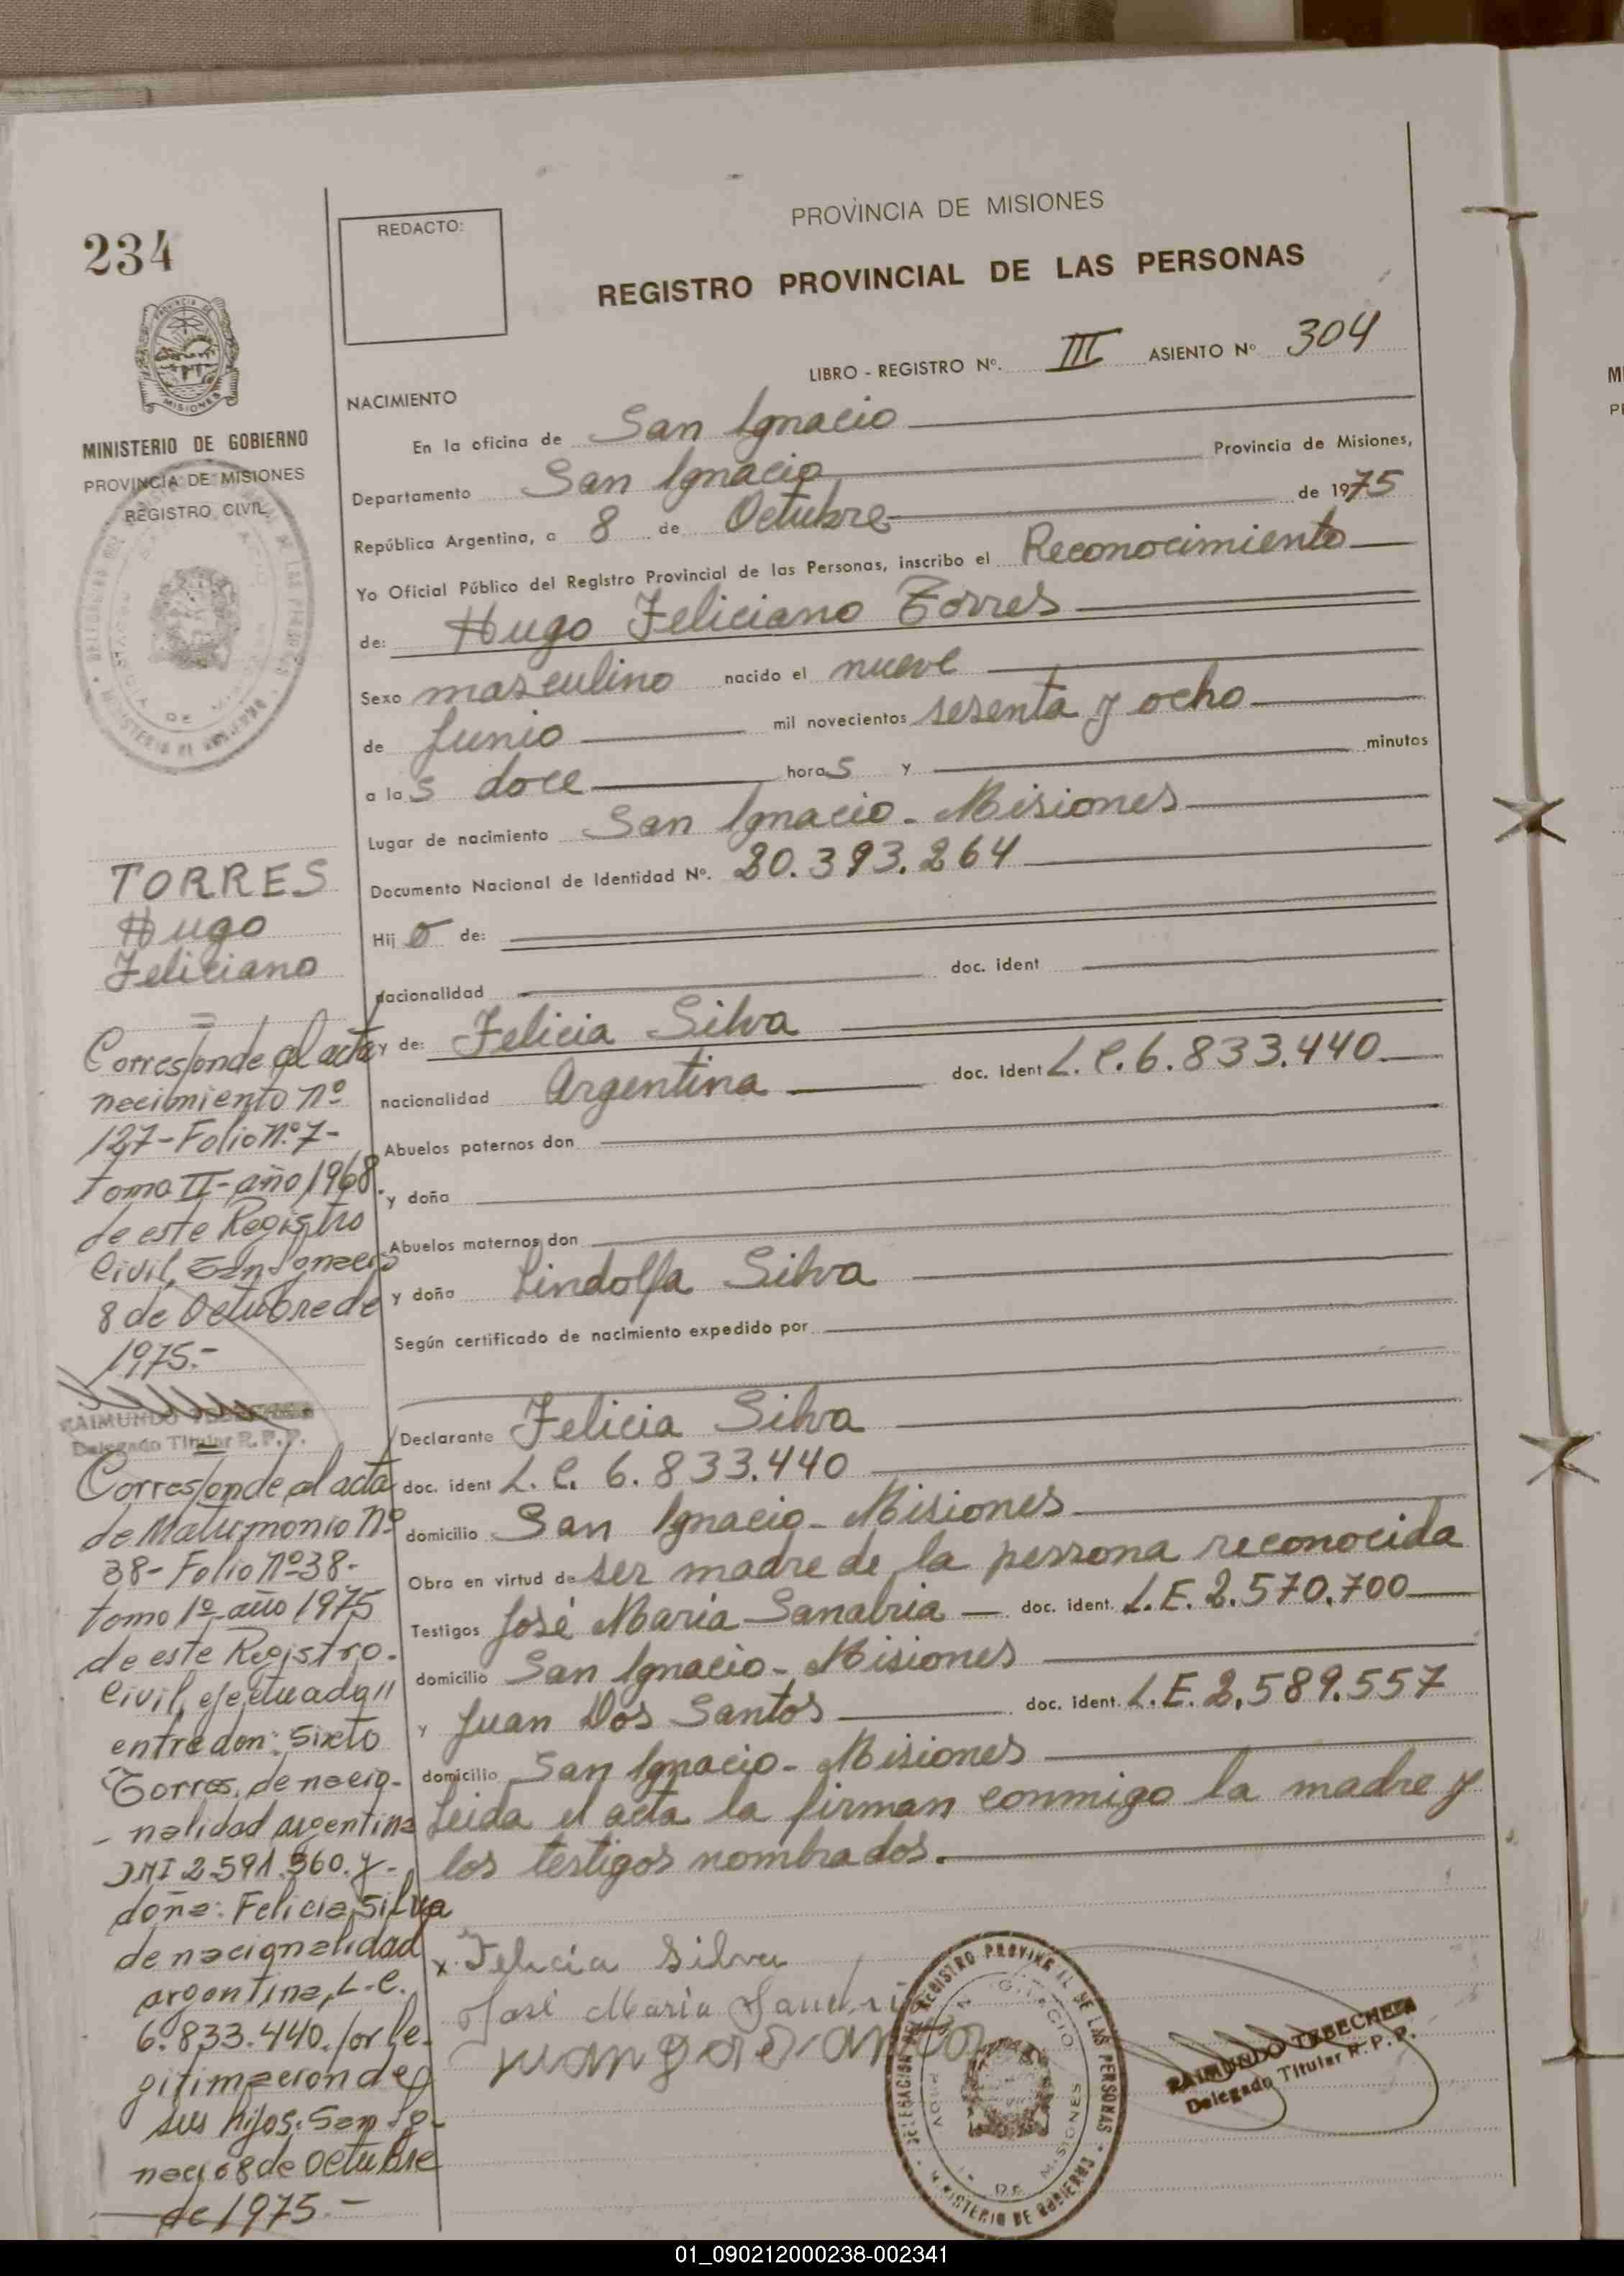 234
MINISTERIO DE GOBIERNO
PROVINCIA DE MISIONES
REGISTRO CIVIL
REDACTO:
PROVINCIA DE MISIONES
REGISTRO PROVINCIAL DE LAS PERSONAS
LIBRO - REGISTRO Nº. III ASIENTO Nº 304
NACIMIENTO
En la oficina de San Ignacio
Departamento San Ignacio Provincia de Misiones,
República Argentina, a 8 de Octubre de 1975
Yo Oficial Público del Registro Provincial de las Personas, inscribo el Reconocimiento
de: Hugo Feliciano Torres
Sexo masculino nacido el nueve
de Junio mil novecientos sesenta y ocho
a las doce horas y minutos
Lugar de nacimiento San Ignacio - Misiones
Documento Nacional de Identidad Nº. 20.393.264
Hijo de:
nacionalidad doc. ident
y de: Felicia Silva
nacionalidad Argentina doc. ident L.C. 6.833.440
Abuelos paternos don
y doña
Abuelos maternos don
y doña Lindolfa Silva
Según certificado de nacimiento expedido por
Declarante Felicia Silva
doc. ident L.C. 6.833.440
domicilio San Ignacio - Misiones
Obra en virtud de ser madre de la persona reconocida
Testigos José María Sanabria doc. ident. L.E. 2.570.700
domicilio San Ignacio - Misiones
y Juan Dos Santos doc. ident. L.E. 2.589.557
domicilio San Ignacio - Misiones
Leida el acta la firman conmigo la madre y
los testigos nombrados.
x Felicia Silva
José María
RAIMUNDO TEBECHERY
Delegado Titular R.P.P.
DELEGACION DEL REGISTRO PROVINCIAL DE LAS PERSONAS
MINISTERIO DE GOBIERNO
TORRES
Hugo
Feliciano
Corresponde al acta
necimiento Nº
127 - Folio Nº. 7 -
Tomo II - año 1968.
de este Registro
Civil, San Ignacio
8 de Octubre de
1975.-
RAIMUNDO
Delegado Titular R.P.P.
Corresponde al acta
de Matrimonio Nº
38 - Folio Nº 38 -
tomo 1º año 1975
de este Registro.
Civil, efectuada
entre don: Sixto
Torres, de nacio-
nalidad argentina
DNI 2.591.960. y -
doña: Felicia Silva
de nacionalidad
argentina, L.C.
6.833.440. por le-
gitimacion de
sus hijos. San Ig-
nacio 8 de Octubre
de 1975.-
01_090212000238-002341